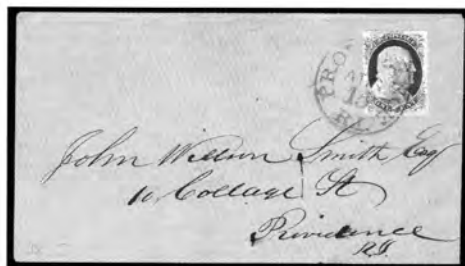 PRO
15
R.I.
John Willson Smith Esq
10 College St
Providence
R.I.